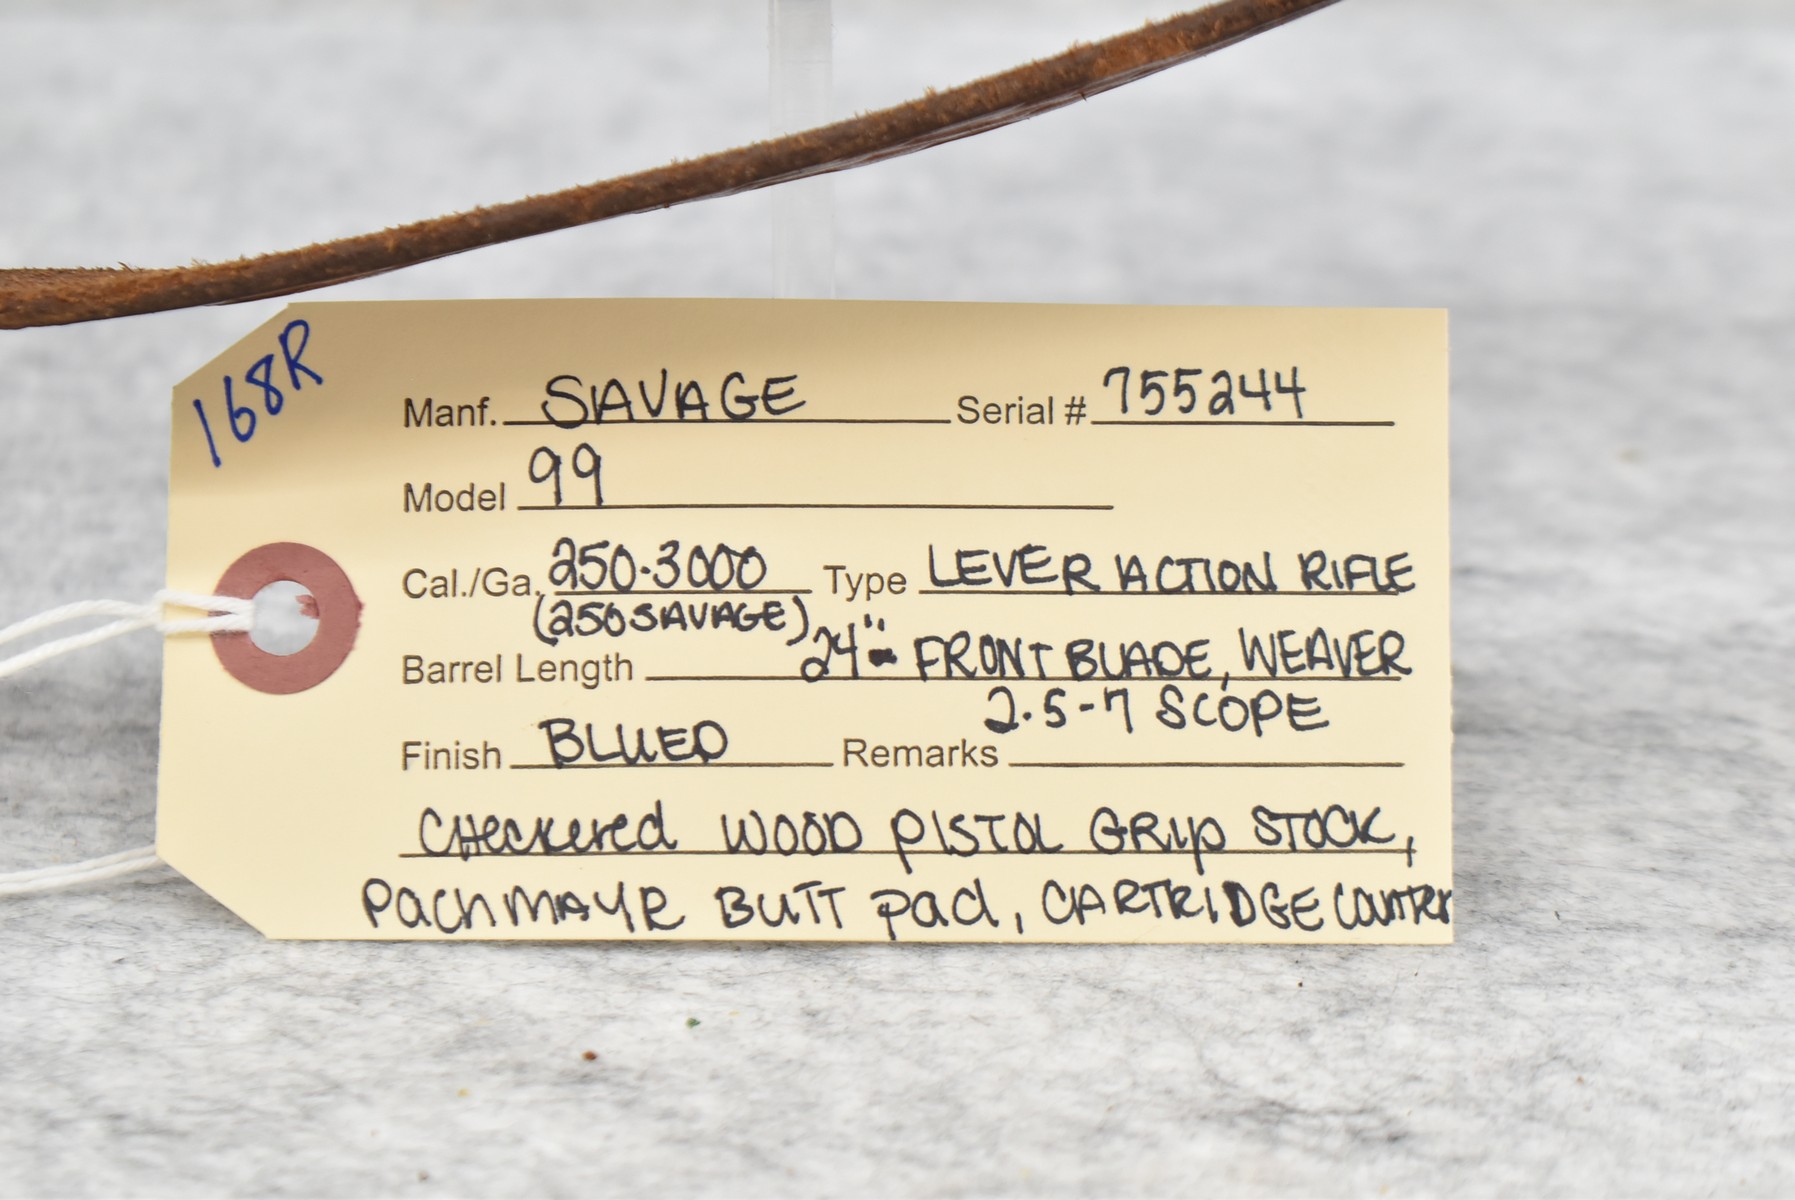 168R
Manf. SAVAGE Serial # 755244
Model 99
Cal./Ga. 250-3000 Type LEVER ACTION RIFLE
(250 SAVAGE)
Barrel Length 24" - FRONT BLADE, WEAVER
2.5-7 SCOPE
Finish BLUED Remarks
CHeckered WOOD PISTOL GRIP STOCK,
PachmAYR BUTT pad, CARTRIDGE COUNTER